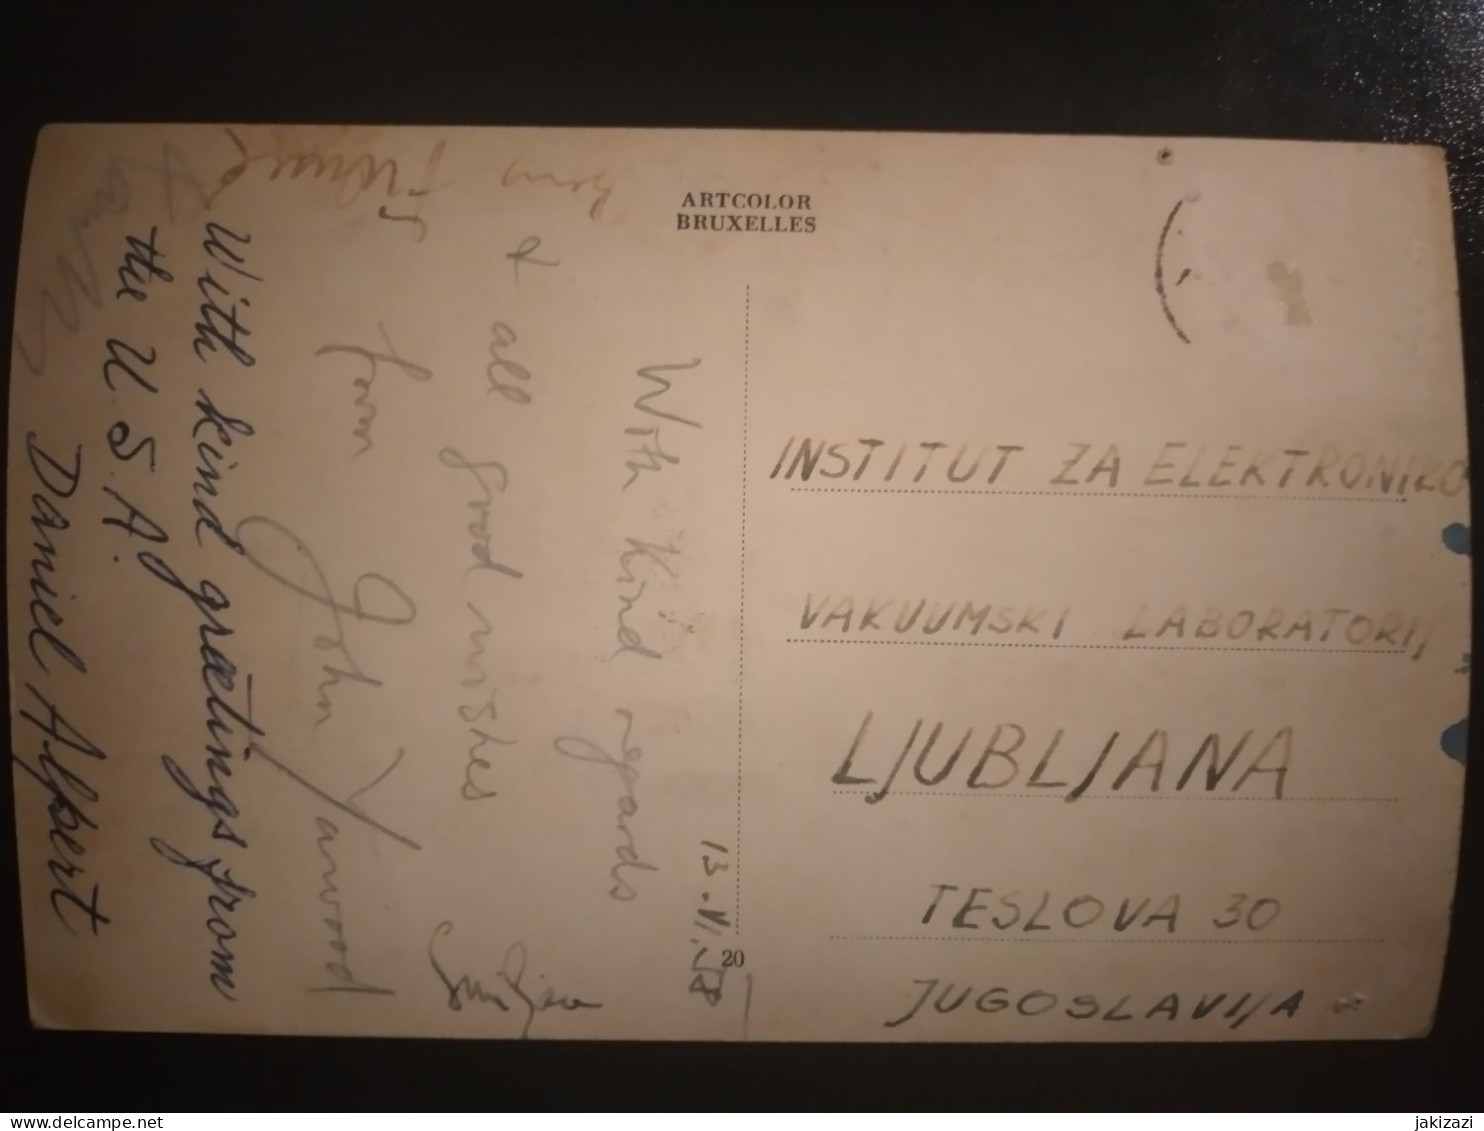 ARTCOLOR
BRUXELLES
13.VI.58
With kind regards
& all good wishes
from
John Yarwood
With kind greetings from
the U.S.A.
Daniel Alpert
20
INSTITUT ZA ELEKTRONIKO
VAKUUMSKI LABORATORIJ
LJUBLJANA
TESLOVA 30
JUGOSLAVIJA
delcampe.net
jakizazi